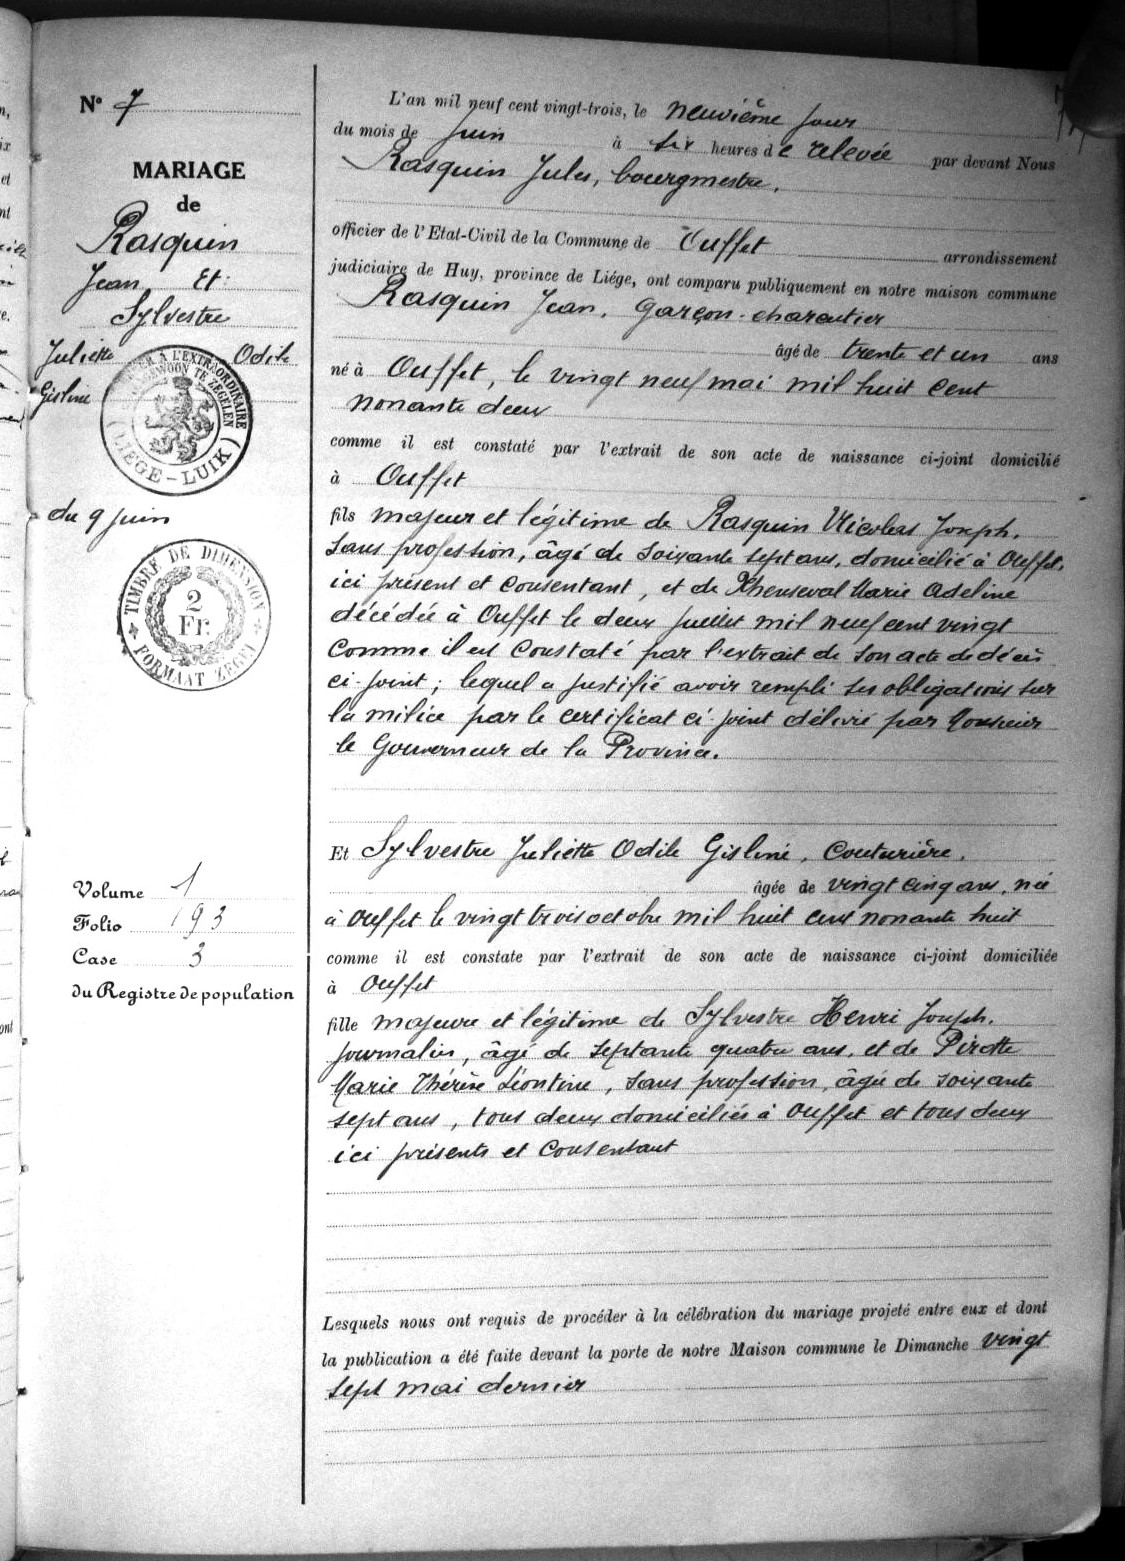 N° 7
MARIAGE
de
Rasquin
Jean Et
Sylvestre
Juliette Odile
Gisline
TIMBRER À L'EXTRAORDINAIRE
BUITENGEWOON TE ZEGELEN
( LIÉGE - LUIK )
du 9 juin
TIMBRE DE DIMENSION
2
Fr.
FORMAAT ZEGEL
Volume 1
Folio 193
Case 3
du Registre de population
L'an mil neuf cent vingt-trois, le neuvième jour
du mois de Juin à six heures de relevée par devant Nous
Rasquin Jules, bourgmestre.
officier de l'Etat-Civil de la Commune de Ouffet arrondissement
judiciaire de Huy, province de Liége, ont comparu publiquement en notre maison commune
Rasquin Jean, Garçon-charcutier
âgé de trente et un ans
né à Ouffet, le vingt neuf mai mil huit cent
nonante deux
comme il est constaté par l'extrait de son acte de naissance ci-joint domicilié
à Ouffet
fils majeur et légitime de Rasquin Nicolas Joseph,
sans profession, âgé de soixante sept ans, domicilié à Ouffet,
ici présent et consentant, et de Xhenseval Marie Adeline
décédée à Ouffet le deux juillet mil neuf cent vingt
comme il est constaté par l'extrait de son acte de décès
ci-joint ; lequel a justifié avoir rempli ses obligations sur
la milice par le certificat ci-joint délivré par Monsieur
le Gouverneur de la Province.
Et Sylvestre Juliette Odile Gisline, Couturière,
âgée de vingt cinq ans, née
à Ouffet le vingt trois octobre mil huit cent nonante huit
comme il est constate par l'extrait de son acte de naissance ci-joint domiciliée
à Ouffet
fille majeure et légitime de Sylvestre Henri Joseph,
journalier, âgé de septante quatre ans, et de Pirotte
Marie Thérèse Léontine, sans profession, âgée de soixante
sept ans, tous deux domiciliés à Ouffet et tous deux
ici présents et consentant
Lesquels nous ont requis de procéder à la célébration du mariage projeté entre eux et dont
la publication a été faite devant la porte de notre Maison commune le Dimanche vingt
sept mai dernier